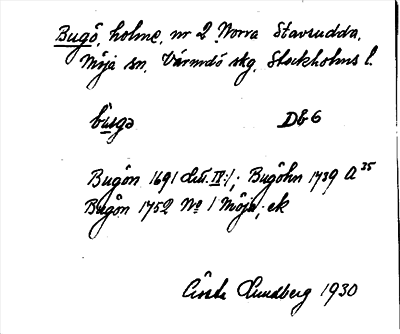 Bugö, holme, nr 2 Norra Stavsudda,
Möja sn, Värmdö skg, Stockholms l.
bu̇gə D66
Bugön 1691 Litt. IV:1; Bugöhn 1739 A 35
Bugön 1752 No 1 Möja; ek
Gösta Lundberg 1930